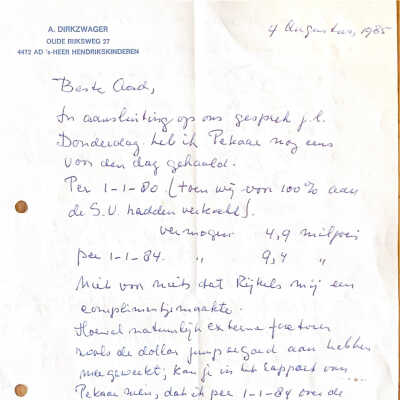 A. DIRKZWAGER
OUDE RIJKSWEG 27
4472 AD 's-HEER HENDRIKSKINDEREN
4 Augustus, 1985
Beste Aad,
In aansluiting op ons gesprek j.l.
Donderdag heb ik Pekaar nog eens
voor den dag gehaald.
Per 1-1-80 (toen wij voor 100% aan
de S.V. hadden verkocht).
vermogen 4,9 miljoen
per 1-1-84 " 9,4 "
Niet voor niets dat Rijkels mij een
complimentje maakte.
Hoewel natuurlijk externe factoren
zoals de dollar goed aan hebben
meegewerkt, kan je in het rapport van
Pekaar zien, dat ik per 1-1-84 over de